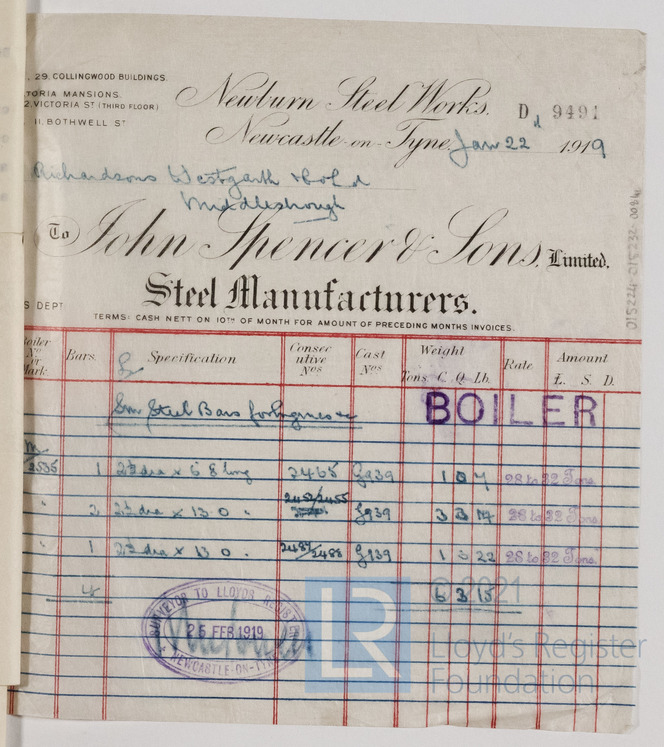 29, COLLINGWOOD BUILDINGS.
TORIA MANSIONS.
2, VICTORIA ST (THIRD FLOOR)
11, BOTHWELL ST
Newburn Steel Works.
D 9491
Newcastle-on-Tyne, Jan 22d 1919
Richardsons Westgarth & Co Ld
Middlesbrough
To John Spencer & Sons, Limited.
Steel Manufacturers.
S DEPT
TERMS: CASH NETT ON 10TH OF MONTH FOR AMOUNT OF PRECEDING MONTHS INVOICES.
oiler No or Mark. Bars. Specification Consecutive Nos Cast Nos Weight Tons. C. Q. Lb. Rate Amount £. S. D.
Sm Steel Bars for Engines &c
BOILER
2536 1 2 dia x 6 8 long 2465 G939 1 0 7 28 to 32 Tons.
" 2 dia x 13 0 " 2452/2455 G939 3 3 14 28 to 32 Tons.
" 1 dia x 13 0 " 2487/2488 G939 1 3 22 28 to 32 Tons.
4 6 3 15
SURVEYOR TO LLOYDS REGISTER
25 FEB 1919
NEWCASTLE-ON-TYNE
015224-015232-0084
© 2021
LR
Lloyd's Register
Foundation